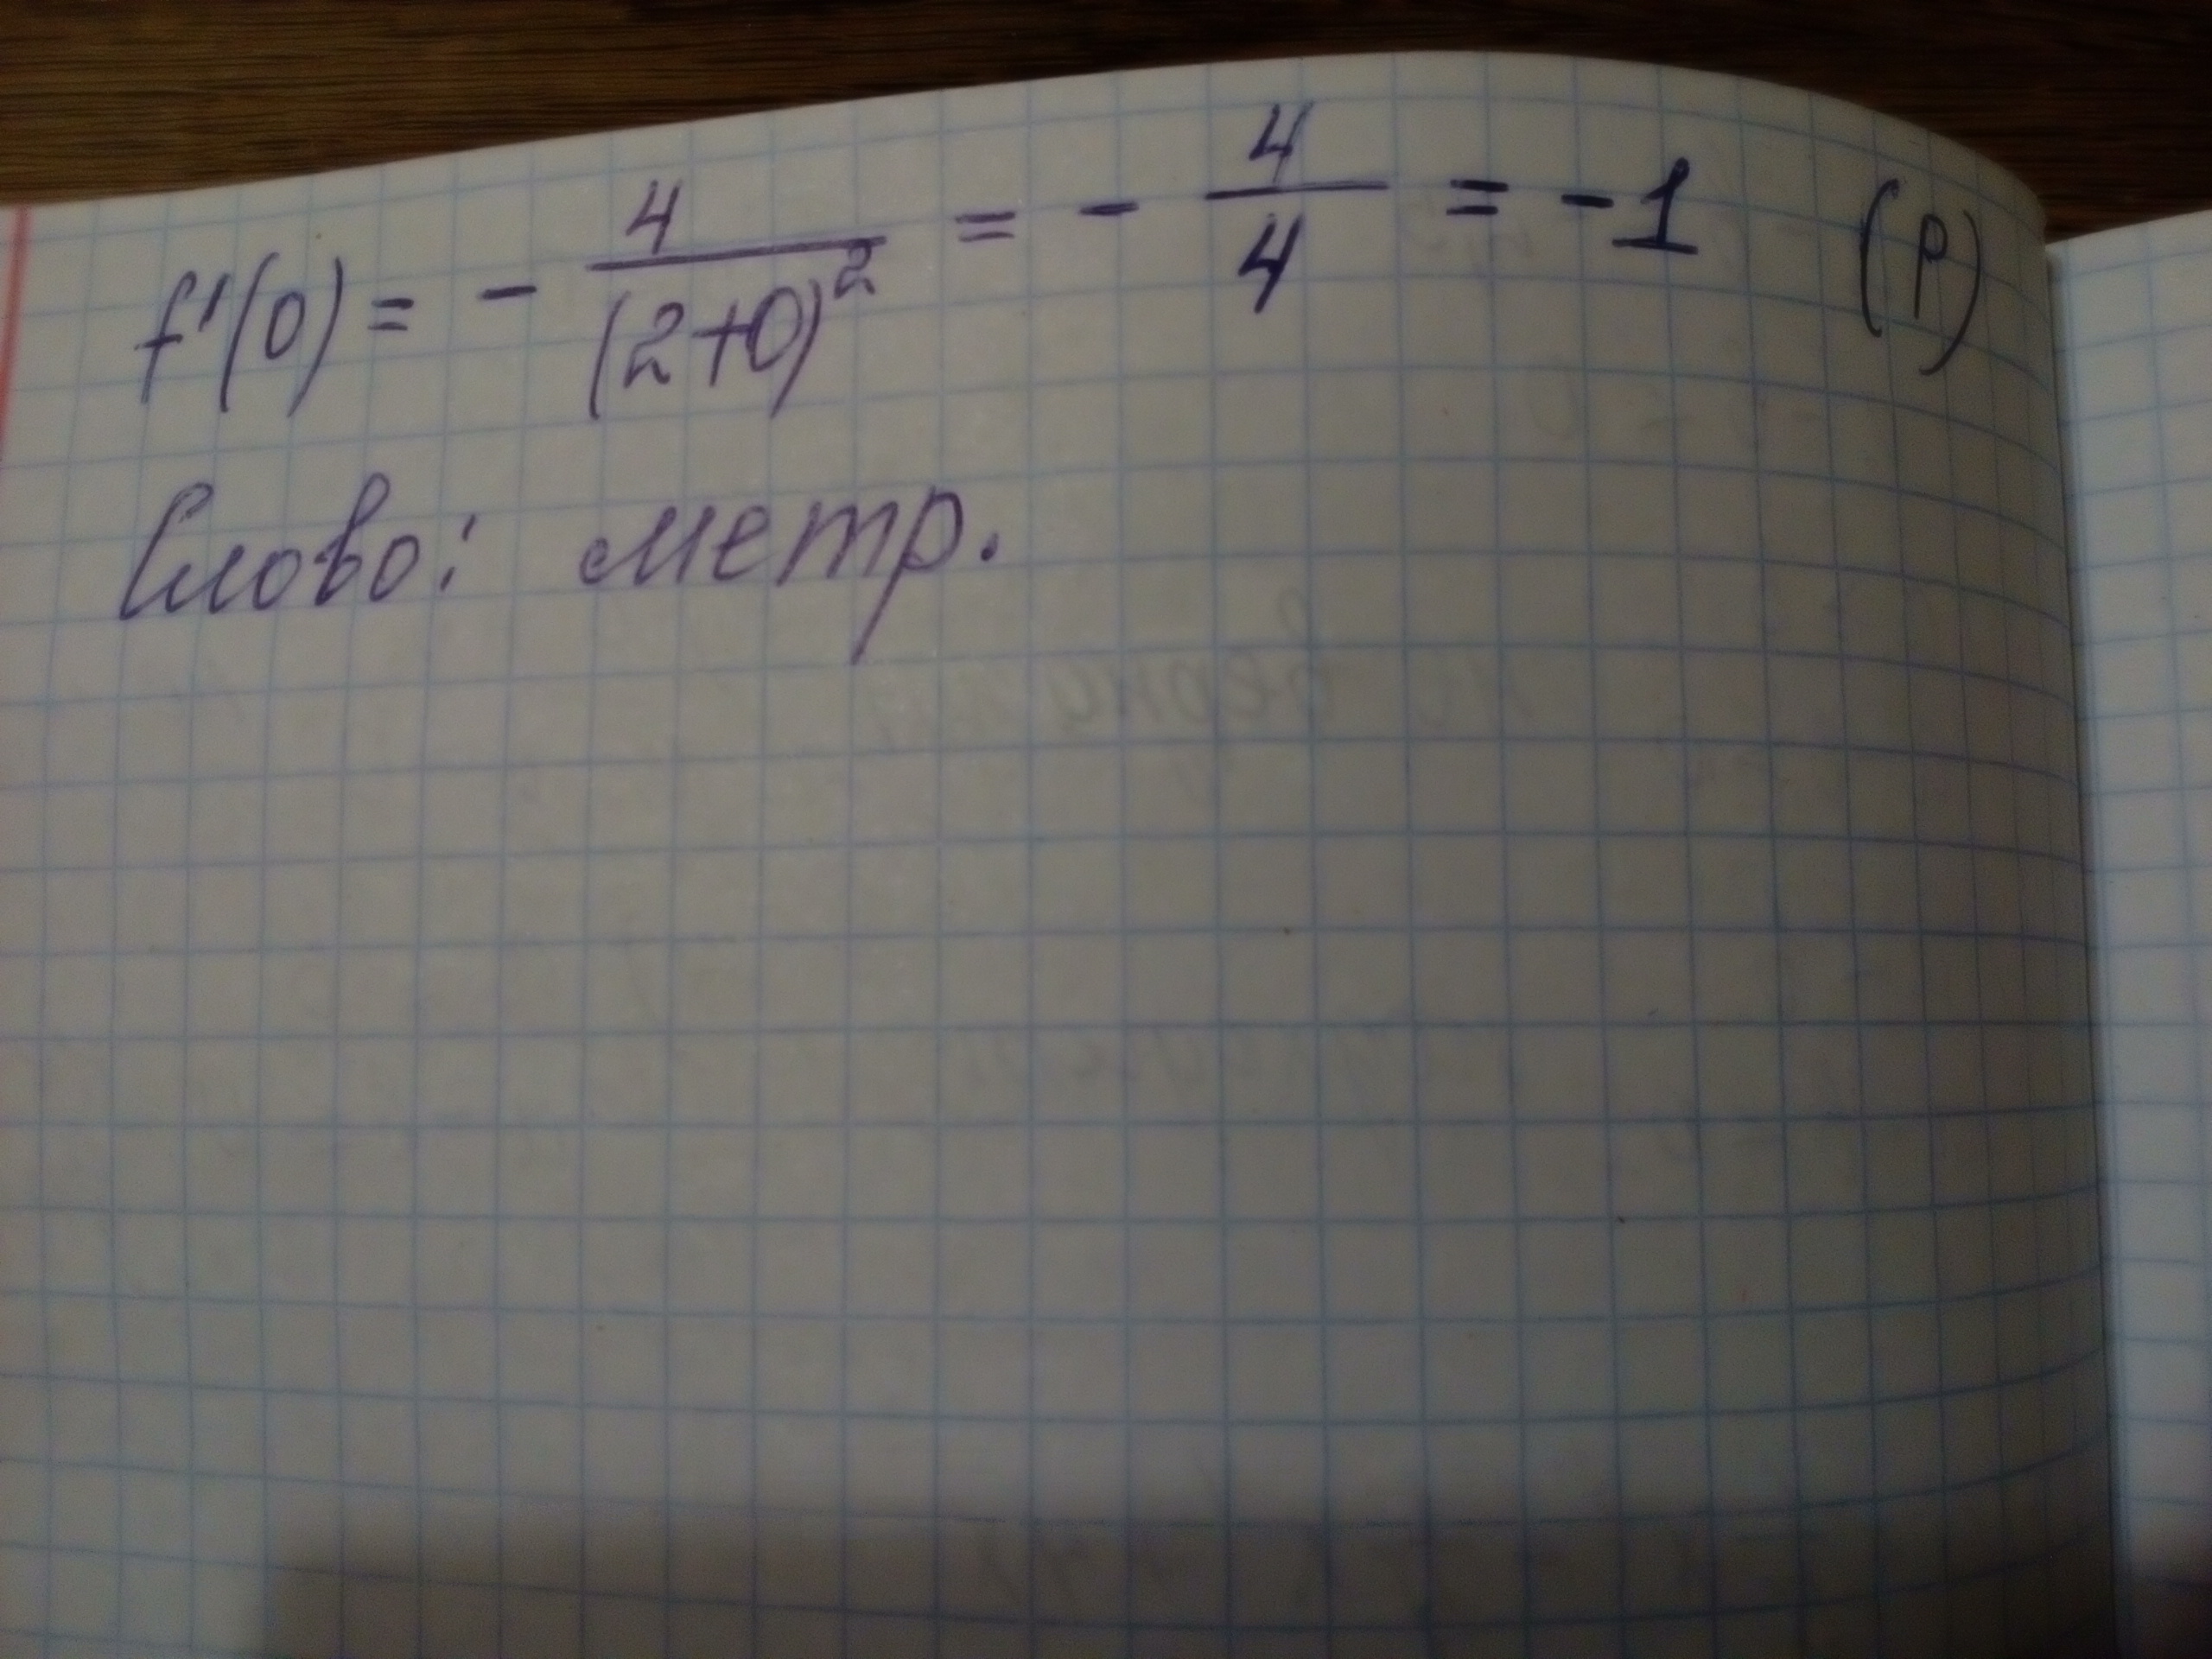 f'(0) = - 4/(2+0)² = - 4/4 = -1 (р)
Слово: метр.